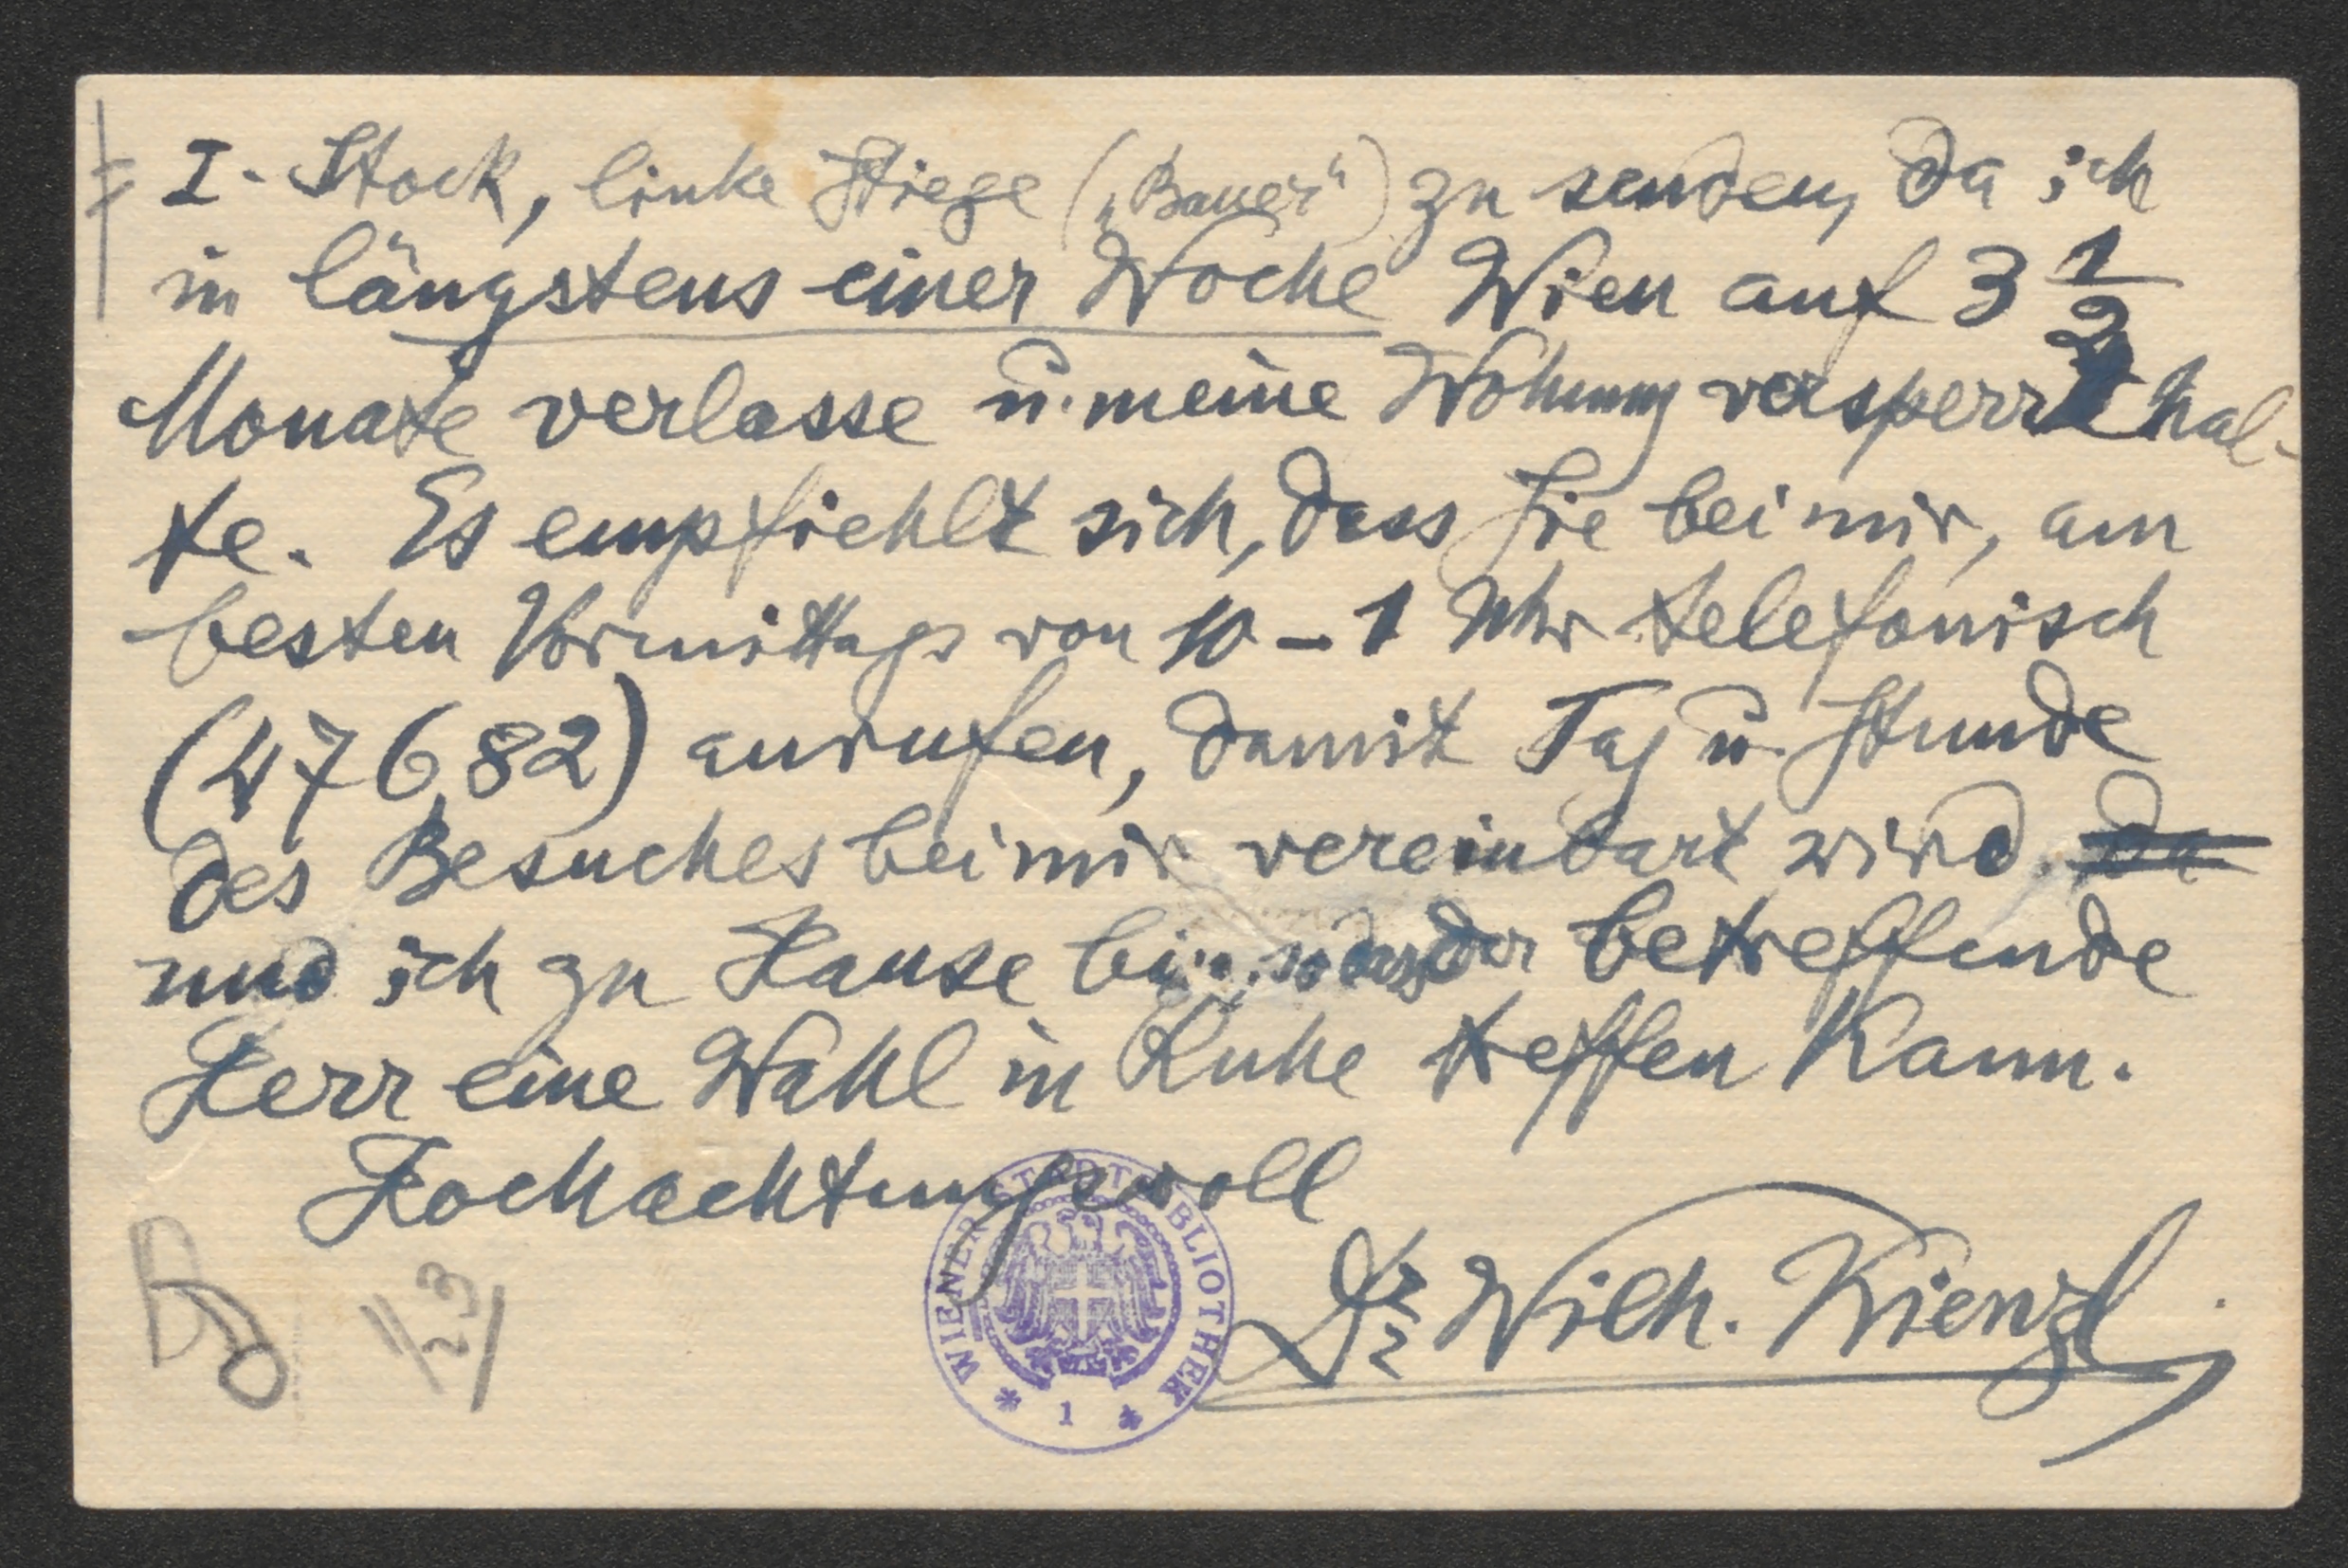 I. Stock, linke Stiege („Bauer“) zu senden, da ich
in längstens einer Woche Wien auf 3 1/2
Monate verlasse u. meine Wohnung versperrt hal-
te. Es empfiehlt sich, dass Sie bei mir, am
besten Vormittags von 10 – 1 Uhr telefonisch
(47682) anrufen, damit Tag u. Stunde
des Besuches bei mir vereinbart wird. da
und ich zu Hause bin, so dass der betreffende
Herr eine Wahl in Ruhe treffen kann.
Hochachtungsvoll
Dr Wilh. Kienzl
WIENER STADTBIBLIOTHEK
* 1 *